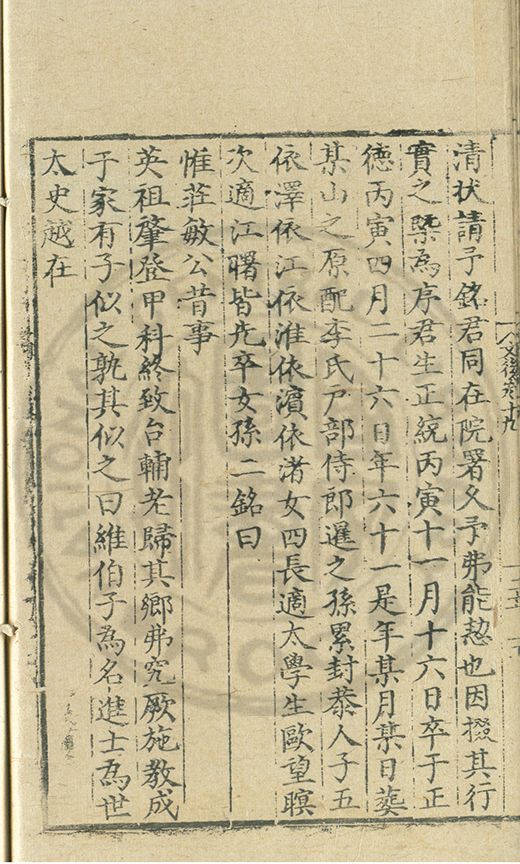 清状請予銘君同在院署久予弗能恝也因掇其行
實之槩為序君生正統丙寅十一月十六日卒于正
徳丙寅四月二十六日年六十一是年某月某日葬
某山之原配李氏户部侍郎暹之孫累封恭人子五
依澤依江依淮依濱依渚女四長適太學生歐望暝
次適江曙皆先卒女孫二銘曰
惟莊敏公昔事
英祖肇登甲科終致台輔老歸其鄉弗究厥施教成
于家有子似之孰其似之曰維伯子為名進士為世
太史越在
文後卷十九